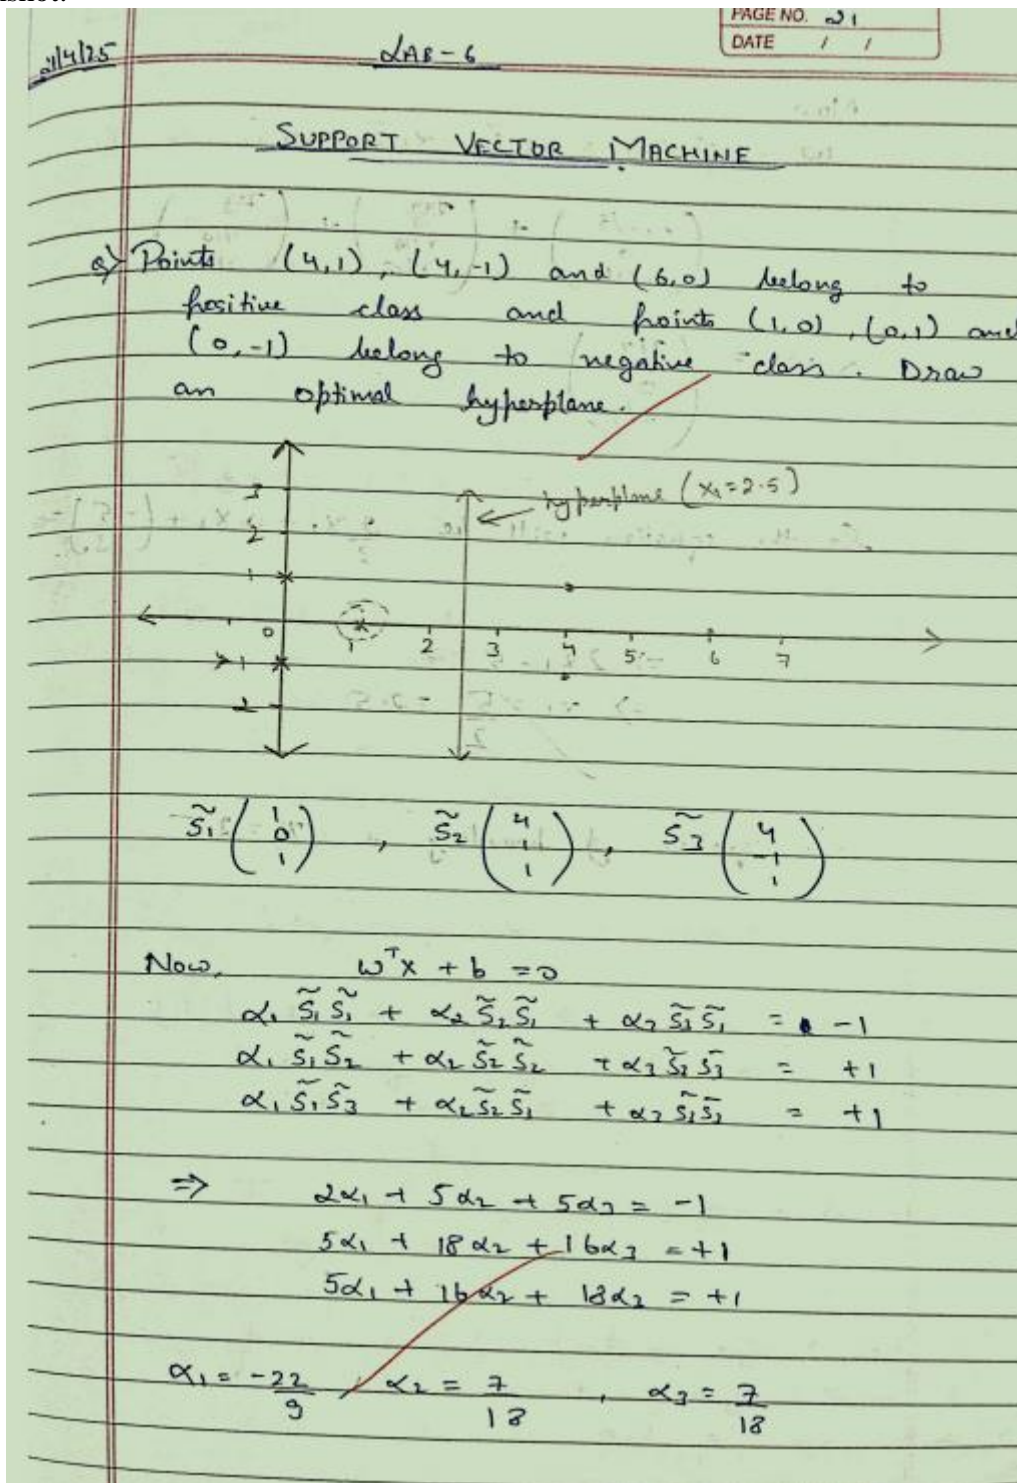 PAGE NO. 21
DATE / /
LAB-6
SUPPORT VECTOR MACHINE
Q) Points (4,1), (4,-1) and (6,0) belong to
positive class and points (1,0), (0,1) and
(0,-1) belong to negative class. Draw
an optimal hyperplane.
hyperplane (x₁=2.5)
3
2
1
0 1 2 3 4 5 6 7
-1
-2
S̃₁ (1 0 1), S̃₂ (4 1 1), S̃3 (4 -1 1)
Now, wᵀx + b = 0
α₁ S̃₁S̃₁ + α₂ S̃₂S̃₁ + α₃ S̃₃S̃₁ = -1
α₁ S̃₁S̃₂ + α₂ S̃₂S̃₂ + α₃ S̃₃S̃₃ = +1
α₁ S̃₁S̃₃ + α₂ S̃₂S̃₃ + α₃ S̃₃S̃₃ = +1
⇒ 2α₁ + 5α₂ + 5α₃ = -1
5α₁ + 18α₂ + 16α₃ = +1
5α₁ + 16α₂ + 18α₂ = +1
α₁ = -22/9, α₂ = 7/18, α₃ = 7/18